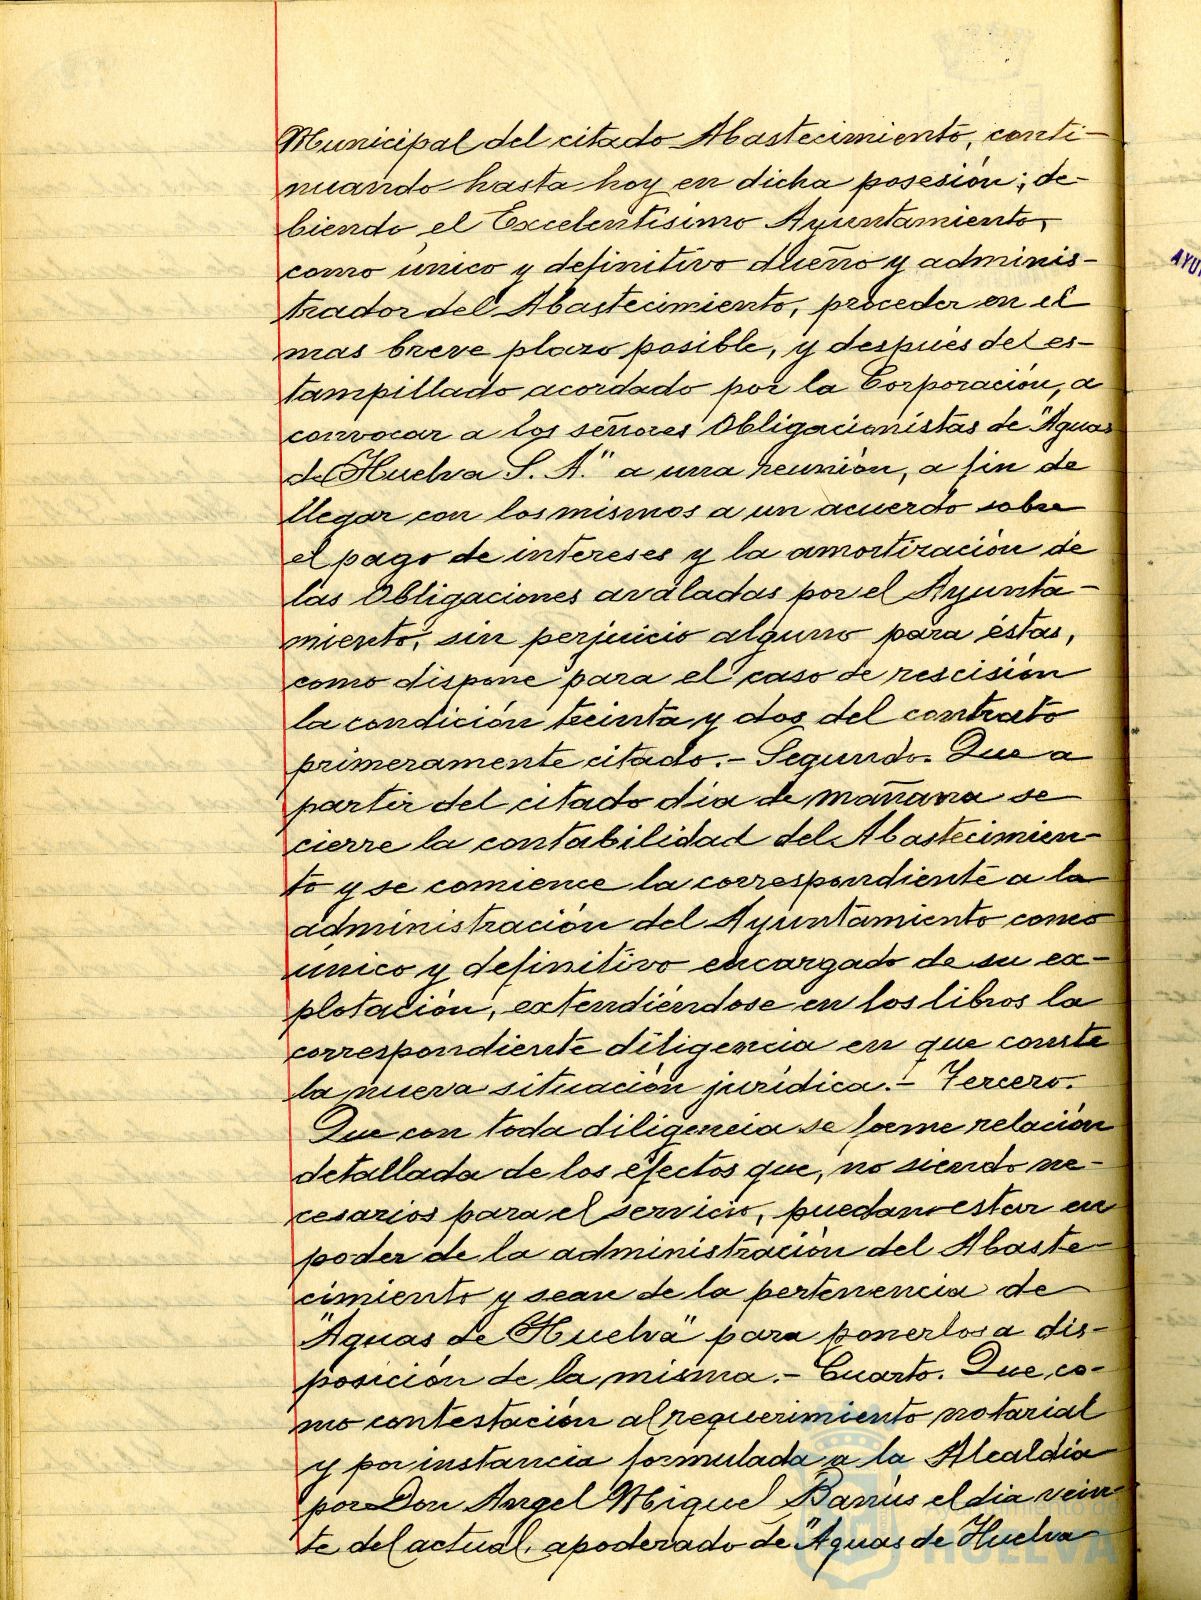 Municipal del citado Abastecimiento, conti-
nuando hasta hoy en dicha posesión; de-
biendo el Excelentísimo Ayuntamiento,
como único y definitivo dueño y adminis-
trador del Abastecimiento, proceder en el
mas breve plazo posible, y después del es-
tampillado acordado por la Corporación, a
convocar a los señores Obligacionistas de "Aguas
de Huelva S. A." a una reunión, a fin de
llegar con los mismos a un acuerdo sobre
el pago de intereses y la amortización de
las Obligaciones avaladas por el Ayunta-
miento, sin perjuicio alguno para éstas,
como dispone para el caso de rescisión
la condición treinta y dos del contrato
primeramente citado.- Segundo. Que a
partir del citado dia de mañana se
cierre la contabilidad del Abastecimien-
to y se comience la correspondiente a la
administración del Ayuntamiento como
único y definitivo encargado de su ex-
plotación, extendiéndose en los libros la
correspondiente diligencia en que conste
la nueva situación jurídica.- Tercero.
Que con toda diligencia se forme relación
detallada de los efectos que, no siendo ne-
cesarios para el servicio, puedan estar en
poder de la administración del Abaste-
cimiento y sean de la pertenencia de
"Aguas de Huelva" para ponerlos a dis-
posición de la misma.- Cuarto. Que, co-
mo contestación al requerimiento notarial
y por instancia formulada a la Alcaldía
por Don Angel Miguel Barrús el dia vein-
te del actual, apoderado de "Aguas de Huelva
HUELVA
AYU